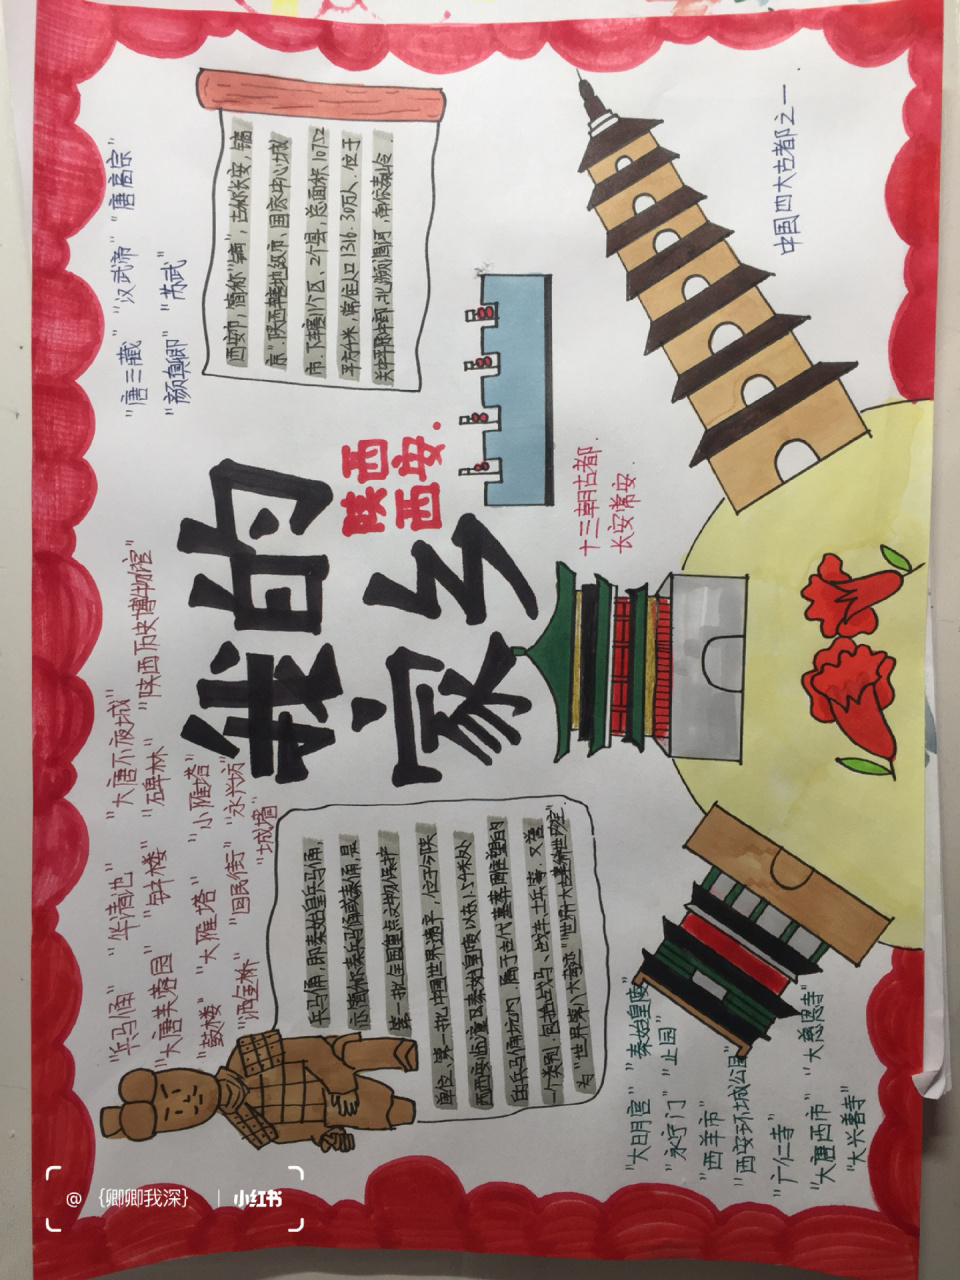 我的
家乡
陕西
西安.
"兵马俑" "华清池" "大唐不夜城"
"大唐芙蓉园" "钟楼" "碑林" "陕西历史博物馆"
"鼓楼" "大雁塔" "小雁塔"
"洒金桥" "回民街" "永兴坊"
"城墙"
"唐三藏" "汉武帝" "唐高宗"
"颜真卿" "苏武"
西安市,简称"镐",古称长安,镐
京".陕西辖地级市、国家中心城
市.下辖11个区、2个县,总面积10752
平方千米,常住人口1316.30万人.位于
关中平原中部,北濒渭河,南依秦岭.
兵马俑,即秦始皇兵马俑,
亦简称秦兵马俑或秦俑,是
第一批全国重点文物保护
单位、第一批中国世界遗产,位于今陕
西西安临潼区秦始皇陵以东1.5千米处
的兵马俑坑内.属于古代墓葬雕塑的
一个类别.包括兵马、战车、士兵等.又誉
为"世界第八大奇迹"
十三朝古都.
长安常安.
中国四大古都之一
"大明宫" "秦始皇陵"
"永宁门" "止园"
"西羊市"
"西安环城公园"
"广仁寺"
"大唐西市" "大慈恩寺"
"大兴善寺"
@ {卿卿我深} | 小红书